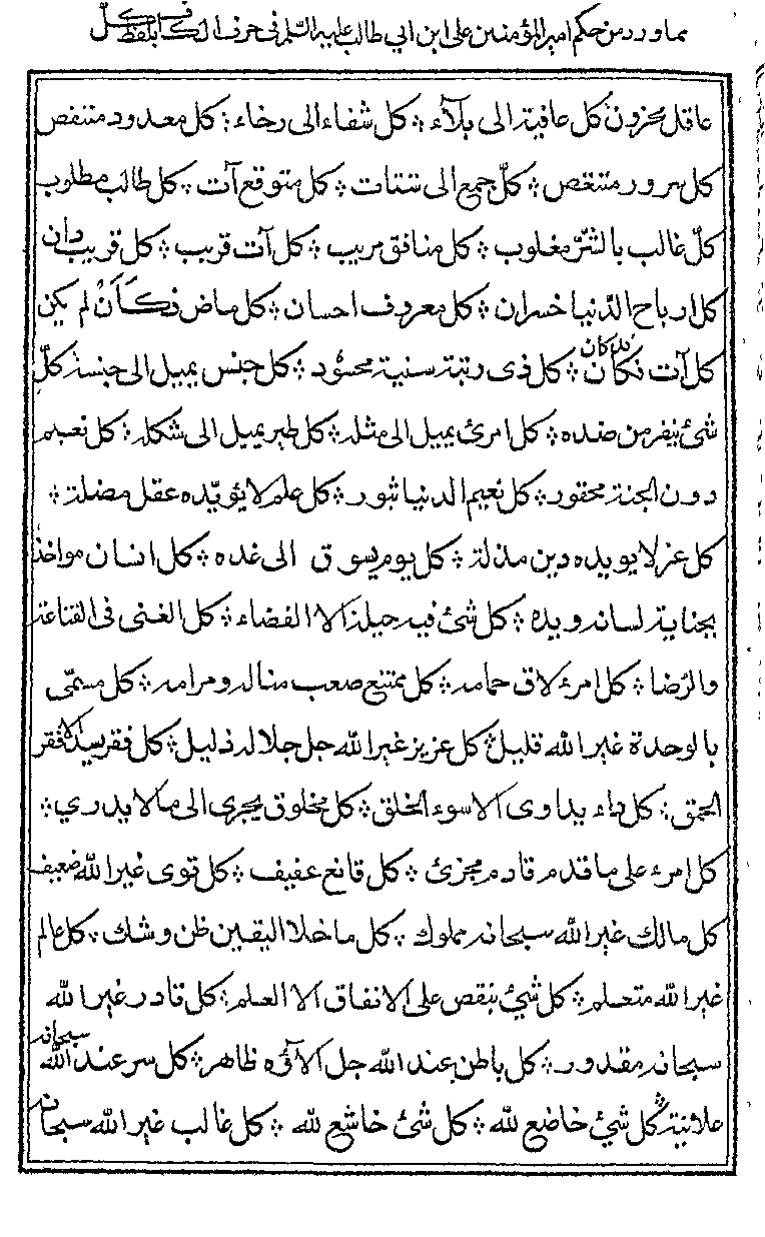 مما ورد من حكم امير المؤمنين على ابن ابى طالب عليه السلم فى حرف الكاف بلفظ كل
عاقل محزون كل عافية الى بلآء ؞ كل شقاء الى رخاء ؞ كل معدود منتقص
كل سرور متنغص ؞ كلّ جمع الى شتات ؞ كل متوقع آت ؞ كل طالب مطلوب
كلّ غالب بالشرّ مغلوب ؞ كل منافق مريب ؞ كل آت قريب ؞ كل قريب دان
كل ارباح الدّنيا خسران ؞ كل معروف احسان ؞ كل ماض فكأن لم يكن
كل آت فكان قد كان ؞ كل ذى رتبة سنية محسود ؞ كل جنس يميل الى جنسه كلّ
شئ ينفر من ضده ؞ كل امرئ يميل الى مثله ؞ كل طير يميل الى شكله ؞ كل نعيم
دون الجنة محقور ؞ كل نعيم الدنيا ثبور ؞ كل علم لا يؤيّده عقل مضلة ؞
كل عز لا يويده دين مذلة ؞ كل يوم يسوق الى غده ؞ كل انسان مواخذ
بجناية لسانه ويده ؞ كل شئ فيه حيلة الا القضاء ؞ كل الغنى فى القناعة
والرّضا ؞ كل امرء لاق حمامه ؞ كل ممتنع صعب مناله ومرامه ؞ كل مسمّى
بالوحدة غير الله قليل ؞ كل عزيز غير الله جل جلاله ذليل ؞ كل فقر يسد الا فقر
الحمق ؞ كل داء يداوى الا سوء الخلق ؞ كل مخلوق يجرى الى مالا يدري ؞
كل امرء على ما قدم قادم ومجزئ ؞ كل قانع عفيف ؞ كل قوى غير الله ضعيف
كل مالك غير الله سبحانه مملوك ؞ كل ما خلا اليقين ظن وشك ؞ كل عالم
غير الله متعلم ؞ كل شئ ينقص على الانفاق الا العلم ؞ كل قادر غير الله
سبحانه مقدور ؞ كل باطن عند الله جل الآؤه ظاهر ؞ كل سر عند الله سبحانه
علانية ؞ كل شئ خاضع لله ؞ كل شئ خاشع لله ؞ كل غالب غير الله سبحانه